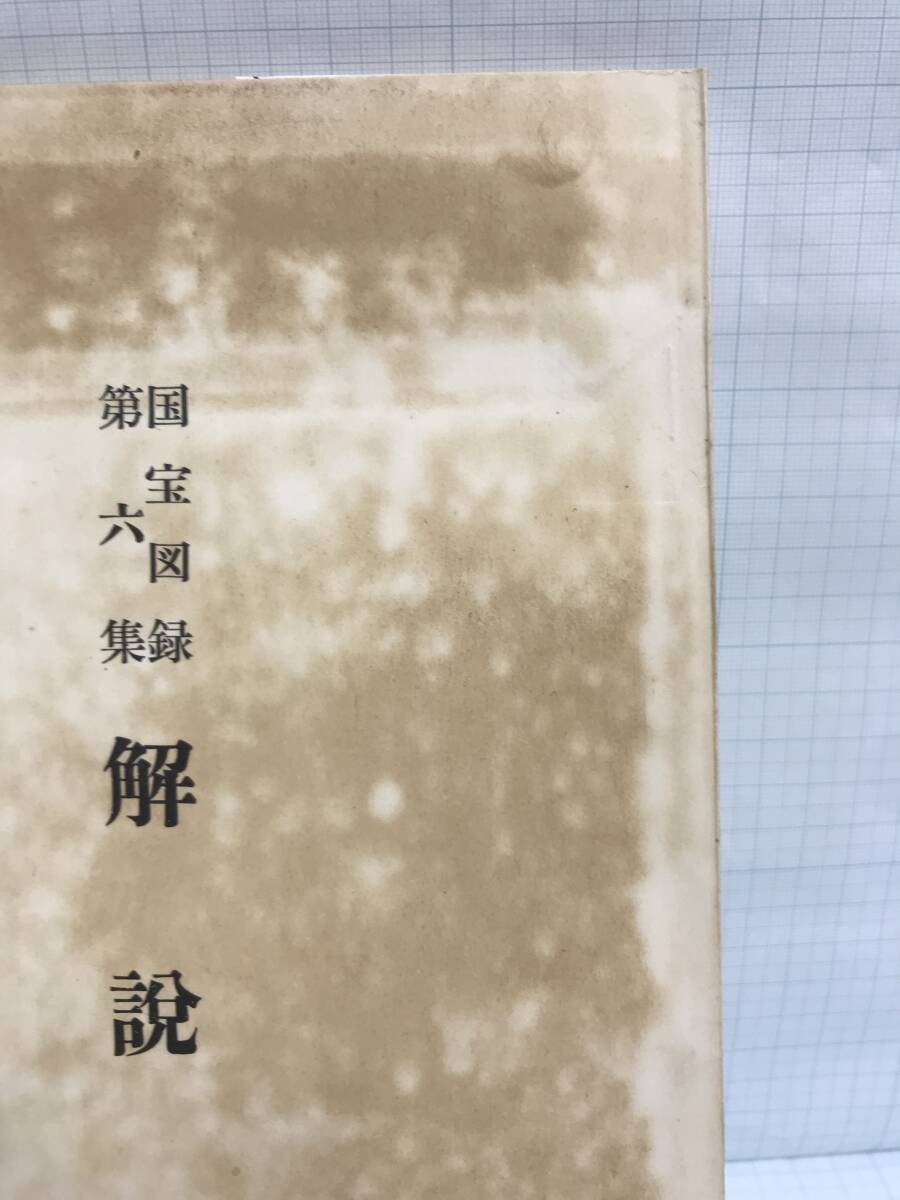 国宝図録
第六集
解説